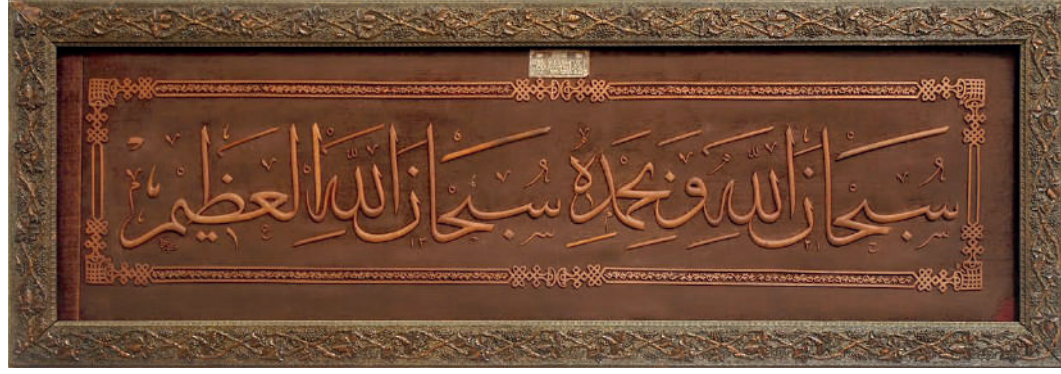 سُبْحَانَ اللّٰهِ وَبِحَمْدِهِ سُبْحَانَ اللّٰهِ الْعَظِيمِ
١٣ ٢١